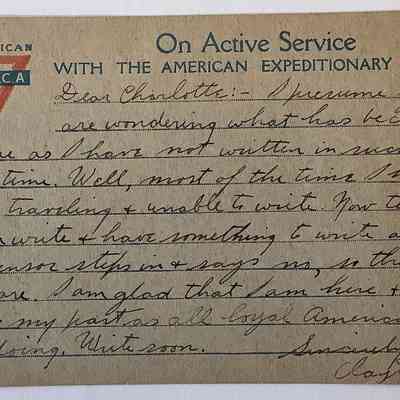 ICAN
C.A
On Active Service
WITH THE AMERICAN EXPEDITIONARY
Dear Charlotte:- I presume
are wondering what has be
as I have not written in suc
time. Well, most of the time I
traveling & unable to write. Now
write & have something to write a
ensor steps in & says no, so th
are. I am glad that I am here &
my part as all loyal America
doing. Write soon. Sincerely
Clay